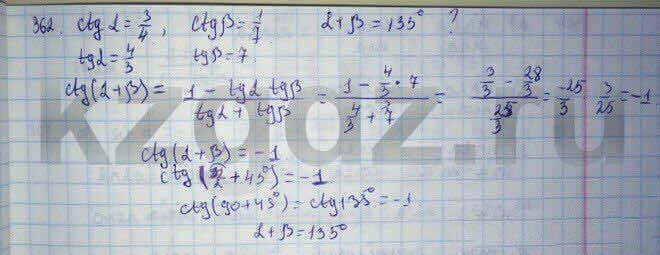 362. ctg α = 3/4, ctg β = 1/7   α + β = 135° ?
tg α = 4/3   tg β = 7
ctg(α + β) = (1 - tg α tg β)/(tg α + tg β) = (1 - 4/3 · 7)/(4/3 + 7) = (3/3 - 28/3)/(25/3) = -25/3 · 3/25 = -1
ctg(α + β) = -1
+ 45°) = -1
ctg(90 + 45°) = ctg 135° = -1
α + β = 135°
kzgdz.ru